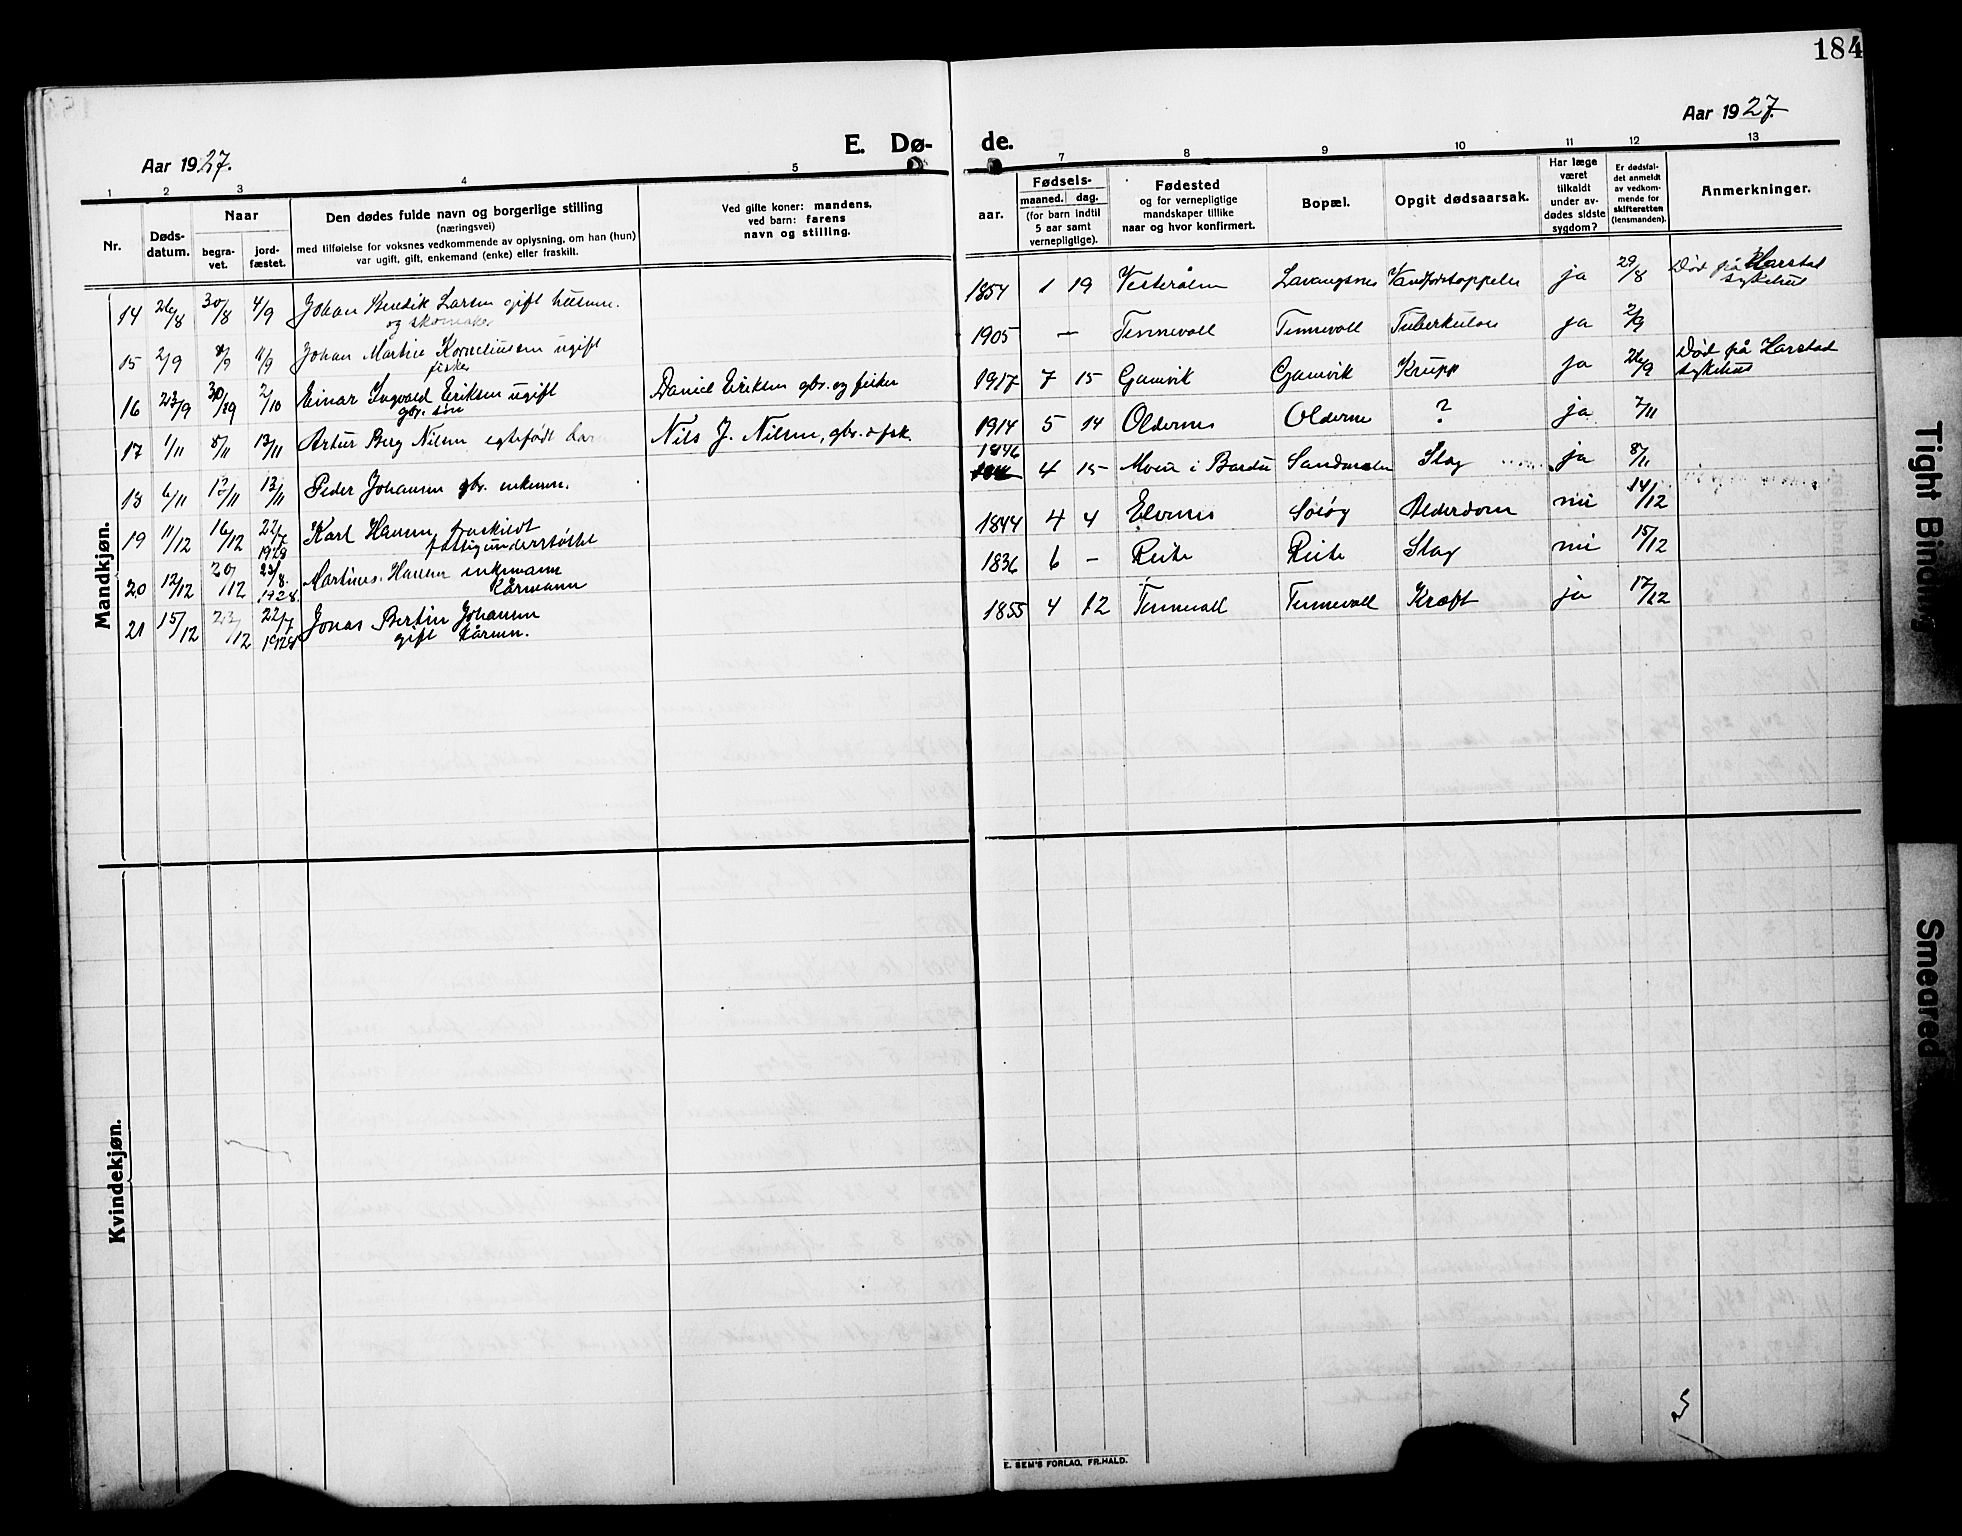 184
Aar 1927.
E. Dø-
de.
Aar 1927.
1 2 3 4 5
7 8 9 10 11 12 13
Nr.
Døds-
datum.
Naar
begra-
vet.
jord-
fæstet.
Den dødes fulde navn og borgerlige stilling
(næringsvei)
med tilføielse for voksnes vedkommende av oplysning, om han (hun)
var ugift, gift, enkemand (enke) eller fraskilt.
Ved gifte koner: mandens,
ved barn: farens
navn og stilling.
Fødsels-
aar.
maaned. dag.
(for barn indtil
5 aar samt
vernepligtige).
Fødested
og for vernepligtige
mandskaper tillike
naar og hvor konfirmert.
Bopæl.
Opgit dødsaarsak.
Har læge
været
tilkaldt
under av-
dødes sidste
sygdom?
Er dødsfal-
det anmeldt
av vedkom-
mende for
skifteretten
(lensmanden).
Anmerkninger.
Mandkjøn.
14 26/8 30/8 4/9 Johan Bendik Larsen gift husmn.
og skomaker
1854 1 19 Vesterålen Lavangsnes ja 29/8 Død på Harstad
sykehus
15 2/9 8/9 11/9 Johan Martin Korneliussen ugift
fisker
1905 — Tennevoll Tennevoll Tuberkulose ja 2/9
16 23/9 30/9 2/10 Einar Ingvald Eriksen ugift
gbr. søn
Daniel Eriksen gbr. og fisker
1917 7 15 Gamvik Gamvik Krupp ja 26/9 Død på Harstad
sykehus
17 1/11 8/11 13/11 Artur Berg Nilsen egtefødt barn
Nils J. Nilsen, gbr. & fisk.
1914 5 14 Oldernes Olderne ? ja 7/11
18 6/11 12/11 13/11 Peder Johansen gbr. enkemn.
1846 4 15 Moen i Bardu Sandmælen Slag ja 8/11
19 11/12 16/12 22/7 1928 Karl Hansen, fraskildt
fattigunderstøttet
1844 4 4 Elvenes Soløy Alderdom nei 14/12
20 12/12 20/12 23/8. 1928. Martinus Hansen enkemann
Kårmann
1836 6 - Reite Reite Slag nei 15/12
21 15/12 23/12 22/7 1928 Jonas Bertin Johansen
gift kårmn.
1855 4 12 Tennevoll Tennevoll Kræft ja 17/12
Kvindekjøn.
E. SEM'S FORLAG, FR.HALD.
Tight Binding
Smeared